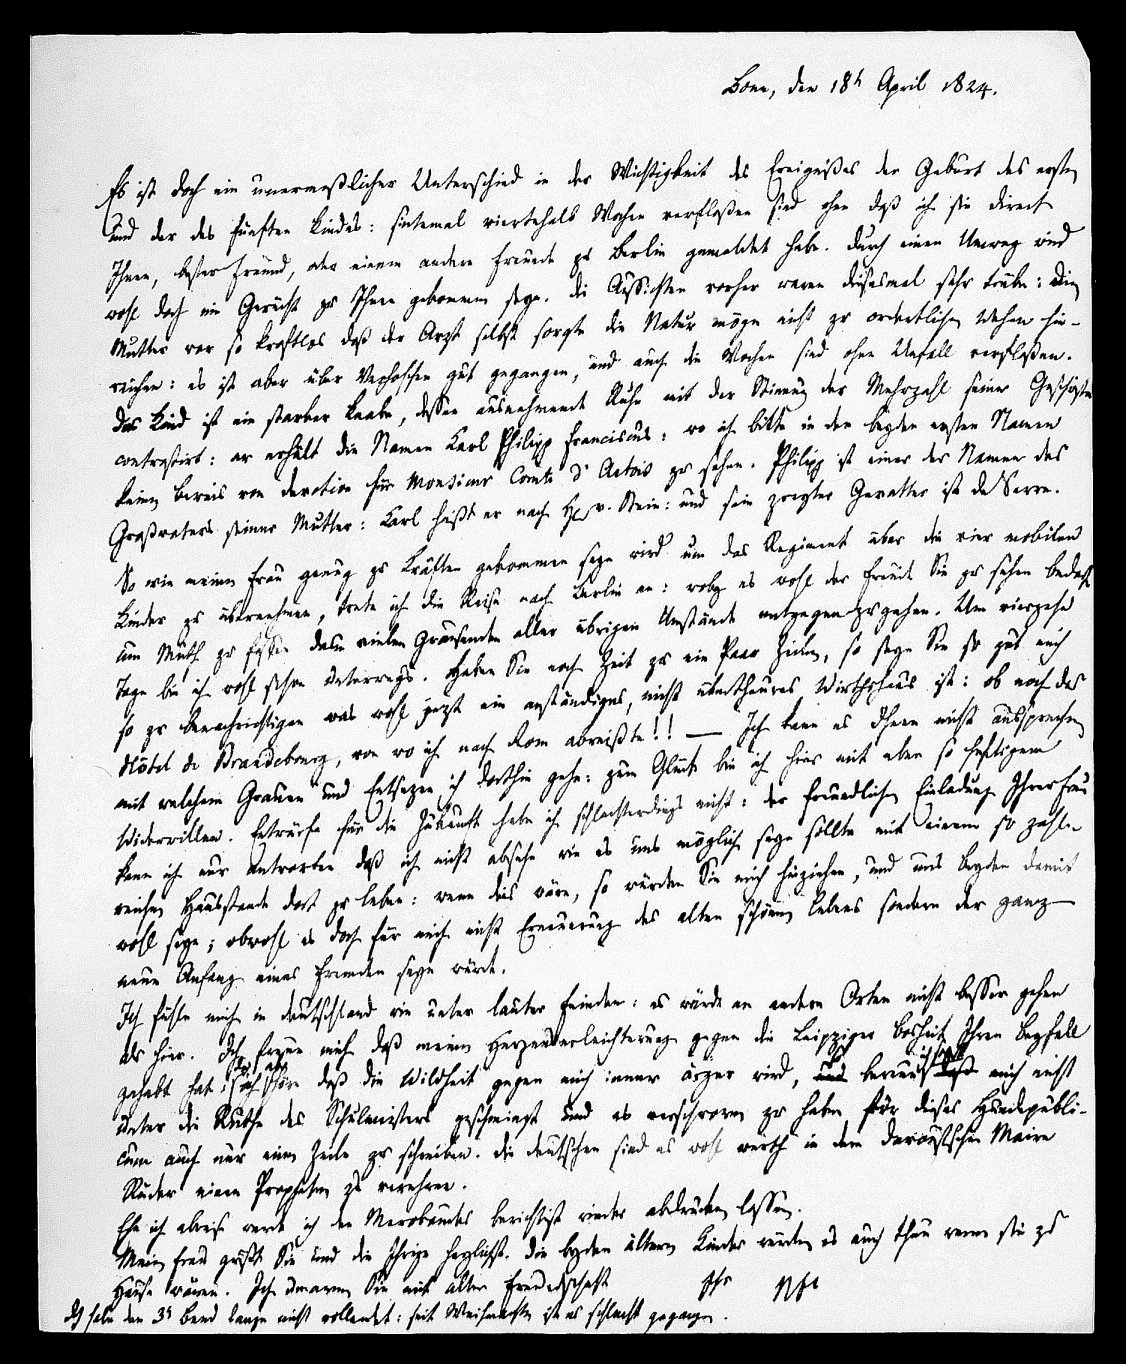 Bonn, den 18t April 1824.
Es ist doch ein unermeßlicher Unterschied in der Wichtigkeit des Ereignißes der Geburt des ersten
und der des fünften Kindes: sintemal viertehalb Wochen verfloßen sind ohne daß ich sie direct
Ihnen, bester Freund, oder einem andern Freunde zu Berlin gemeldet habe. Durch einen Umweg wird
wohl doch ein Gerücht zu Ihnen gekommen seyn. Die Aussichten vorher waren diesesmal sehr trübe: die
Mutter war so kraftlos daß der Arzt selbst sorgte die Natur möge nicht zu ordentlichen Wehen hin-
reichen: es ist aber über Verhoffen gut gegangen, und auch die Wochen sind ohne Unfall verfloßen.
Das Kind ist ein starker Knabe, deßen ausnehmende Ruhe mit der Stimmung der Mehrzahl seiner Geschwister
contrastirt: er erhält die Namen Karl Philipp Franciscus: wo ich bitte in den beyden ersten Namen
keinen Beweis von devotion für Monsieur Comte d'Artois zu sehen. Philipp ist einer der Namen des
Großvaters seiner Mutter: Karl heißt er nach H. v. Stein: und sein zweyter Gevatter ist de Serre.
So wie meine Frau genug zu Kräften gekommen seyn wird um das Regiment über die vier mobilen
Kinder zu übernehmen, trete ich die Reise nach Berlin an: wobey es wohl der Freude Sie zu sehen bedarf
um Muth zu faßen dem vielen Grausenden aller übrigen Umstände entgegen zu gehen. Um vierzehn
Tage bin ich wohl schon unterwegs. Haben Sie noch Zeit zu ein Paar Zeilen, so seyn Sie so gut mich
so zu benachrichtigen was wohl jezt ein anständiges, nicht übertheures Wirthshaus ist: ob noch das
Hôtel de Brandebourg, von wo ich nach Rom abreißte!! — Ich kann es Ihnen nicht aussprechen
mit welchem Grauen und Entsezen ich dorthin gehe: zum Glück bin ich hier mit eben so heftigem
Widerwillen. Entwürfe für die Zukunft habe ich schlechterdings nicht: der freundlichen Einladung Ihrer Frau
kann ich nur antworten daß ich nicht absehe wie es uns möglich seyn sollte mit einem so zahl-
reichen Hausstande dort zu leben: wenn dies wäre, so würden Sie mich hinziehen, und uns beyden damit
wohl seyn; obwohl es doch für mich nicht Erneuerung des alten schönen Lebens sondern der ganz
neue Anfang eines fremden seyn würde.
Ich fühle mich in Deutschland wie unter lauter Feinden: es würde an andern Orten nicht besser gehen
als hier. Ich freue mich daß meine Herzenserleichterung gegen die Leipziger Bosheit Ihren Beyfall
gehabt hat: höre daß die Wildheit gegen mich immer ärger wird, bereue mich nicht
unter die Ruthe des Schulmeisters geschmiegt und es verschworen zu haben für dieses Hundepubli-
cum auch nur eine Zeile zu schreiben. Die Deutschen sind es wohl werth in dem
einen Propheten zu verehren.
Ehe ich abreise werde ich den Merobaudes berichtigt wieder abdrucken lassen.
Meine Frau grüßt Sie und die Ihrige herzlichst. Die beyden ältern Kinder würden es auch thun wenn sie zu
Hause wären. Ich umarme Sie mit alter Freundschaft Ihr
Ich habe den 3t Band lange nicht vollendet: seit Weihnachten ist es schlecht gegangen.